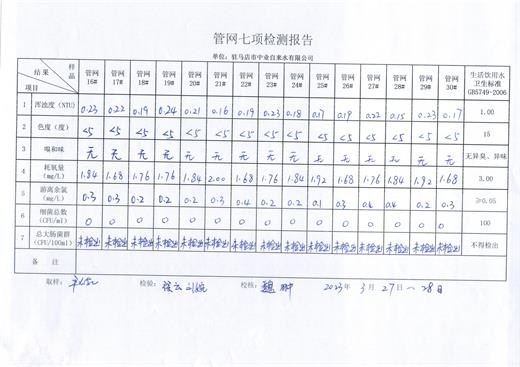 管网七项检测报告
单位：驻马店市中业自来水有限公司
结果 样品 项目 管网16# 管网17# 管网18# 管网19# 管网20# 管网21# 管网22# 管网23# 管网24# 管网25# 管网26# 管网27# 管网28# 管网29# 管网30# 生活饮用水卫生标准GB5749-2006
1 浑浊度（NTU） 0.23 0.22 0.19 0.24 0.21 0.16 0.19 0.23 0.18 0.17 0.19 0.22 0.15 0.23 0.17 1.00
2 色度（度） <5 <5 <5 <5 <5 <5 <5 <5 <5 <5 <5 <5 <5 <5 <5 15
3 嗅和味 无 无 无 无 无 无 无 无 无 无 无 无 无 无 无 无异臭、异味
4 耗氧量（mg/L） 1.84 1.68 1.76 1.76 1.84 2.00 1.68 1.76 1.84 1.92 1.68 1.76 1.84 1.92 1.68 3.00
5 游离余氯（mg/L） 0.3 0.3 0.2 0.2 0.2 0.3 0.4 0.2 0.2 0.1 0.3 0.4 0.4 0.2 0.3 ≥0.05
6 细菌总数（CFU/ml） 0 0 0 0 0 0 0 0 0 0 0 0 0 0 0 100
7 总大肠菌群（CFU/100ml） 未检出 未检出 未检出 未检出 未检出 未检出 未检出 未检出 未检出 未检出 未检出 未检出 未检出 未检出 未检出 不得检出
备 注
取样： 检验： 校核： 2023年3月27日～28日